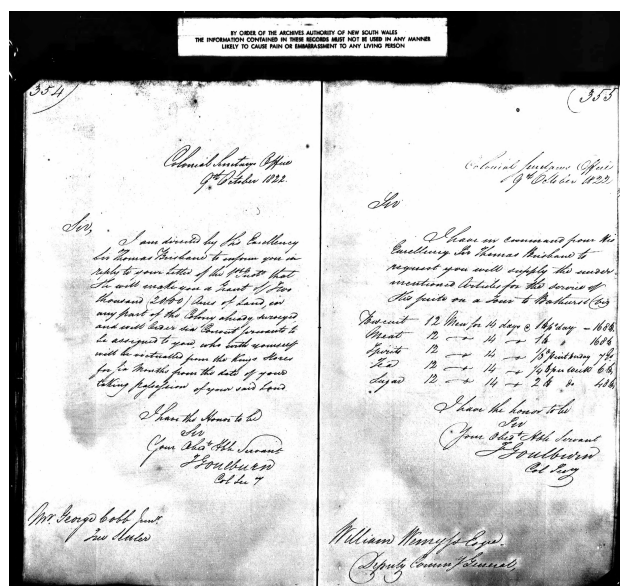 BY ORDER OF THE ARCHIVES AUTHORITY OF NEW SOUTH WALES
THE INFORMATION CONTAINED IN THESE RECORDS MUST NOT BE USED IN ANY MANNER
LIKELY TO CAUSE PAIN OR EMBARRASSMENT TO ANY LIVING PERSON
354
Colonial Secretarys Office
9th October 1822
Sir,
I am directed by His Excellency
Sir Thomas Brisbane to inform you in
reply to your Letter of the Inst that
He will make you a Grant of Two
thousand (2000) Acres of Land, in
any part of the Colony already surveyed
and will order six Convict servants to
be assigned to you, who with yourself
will be victualled from the Kings Stores
for Six Months from the date of your
taking possession of your said land
I have the Honor to be
Sir
Your Obedt Hble Servant
F Goulburn
Col Sec y
Mr. George Cobb Junr.
Free Settler
355
Colonial Secretarys Office
9th October 1822
Sir
I have in command from His
Excellency Sir Thomas Brisbane to
request you will supply the under
mentioned Articles for the service of
His suite on a Tour to Bathurst (Viz
Biscuit 12 Men for 14 days @ 1 lb p day - 168 lb
Meat 12 14 1 lb 168 lb
Spirits 12 14
Tea 12 14 6 lb
Sugar 12 14 2 lb 48 lb
I have the honor to be
Sir
Your Obedt Hble Servant
F Goulburn
Col Secy
William Wemyss Esqre.
Deputy Commy General